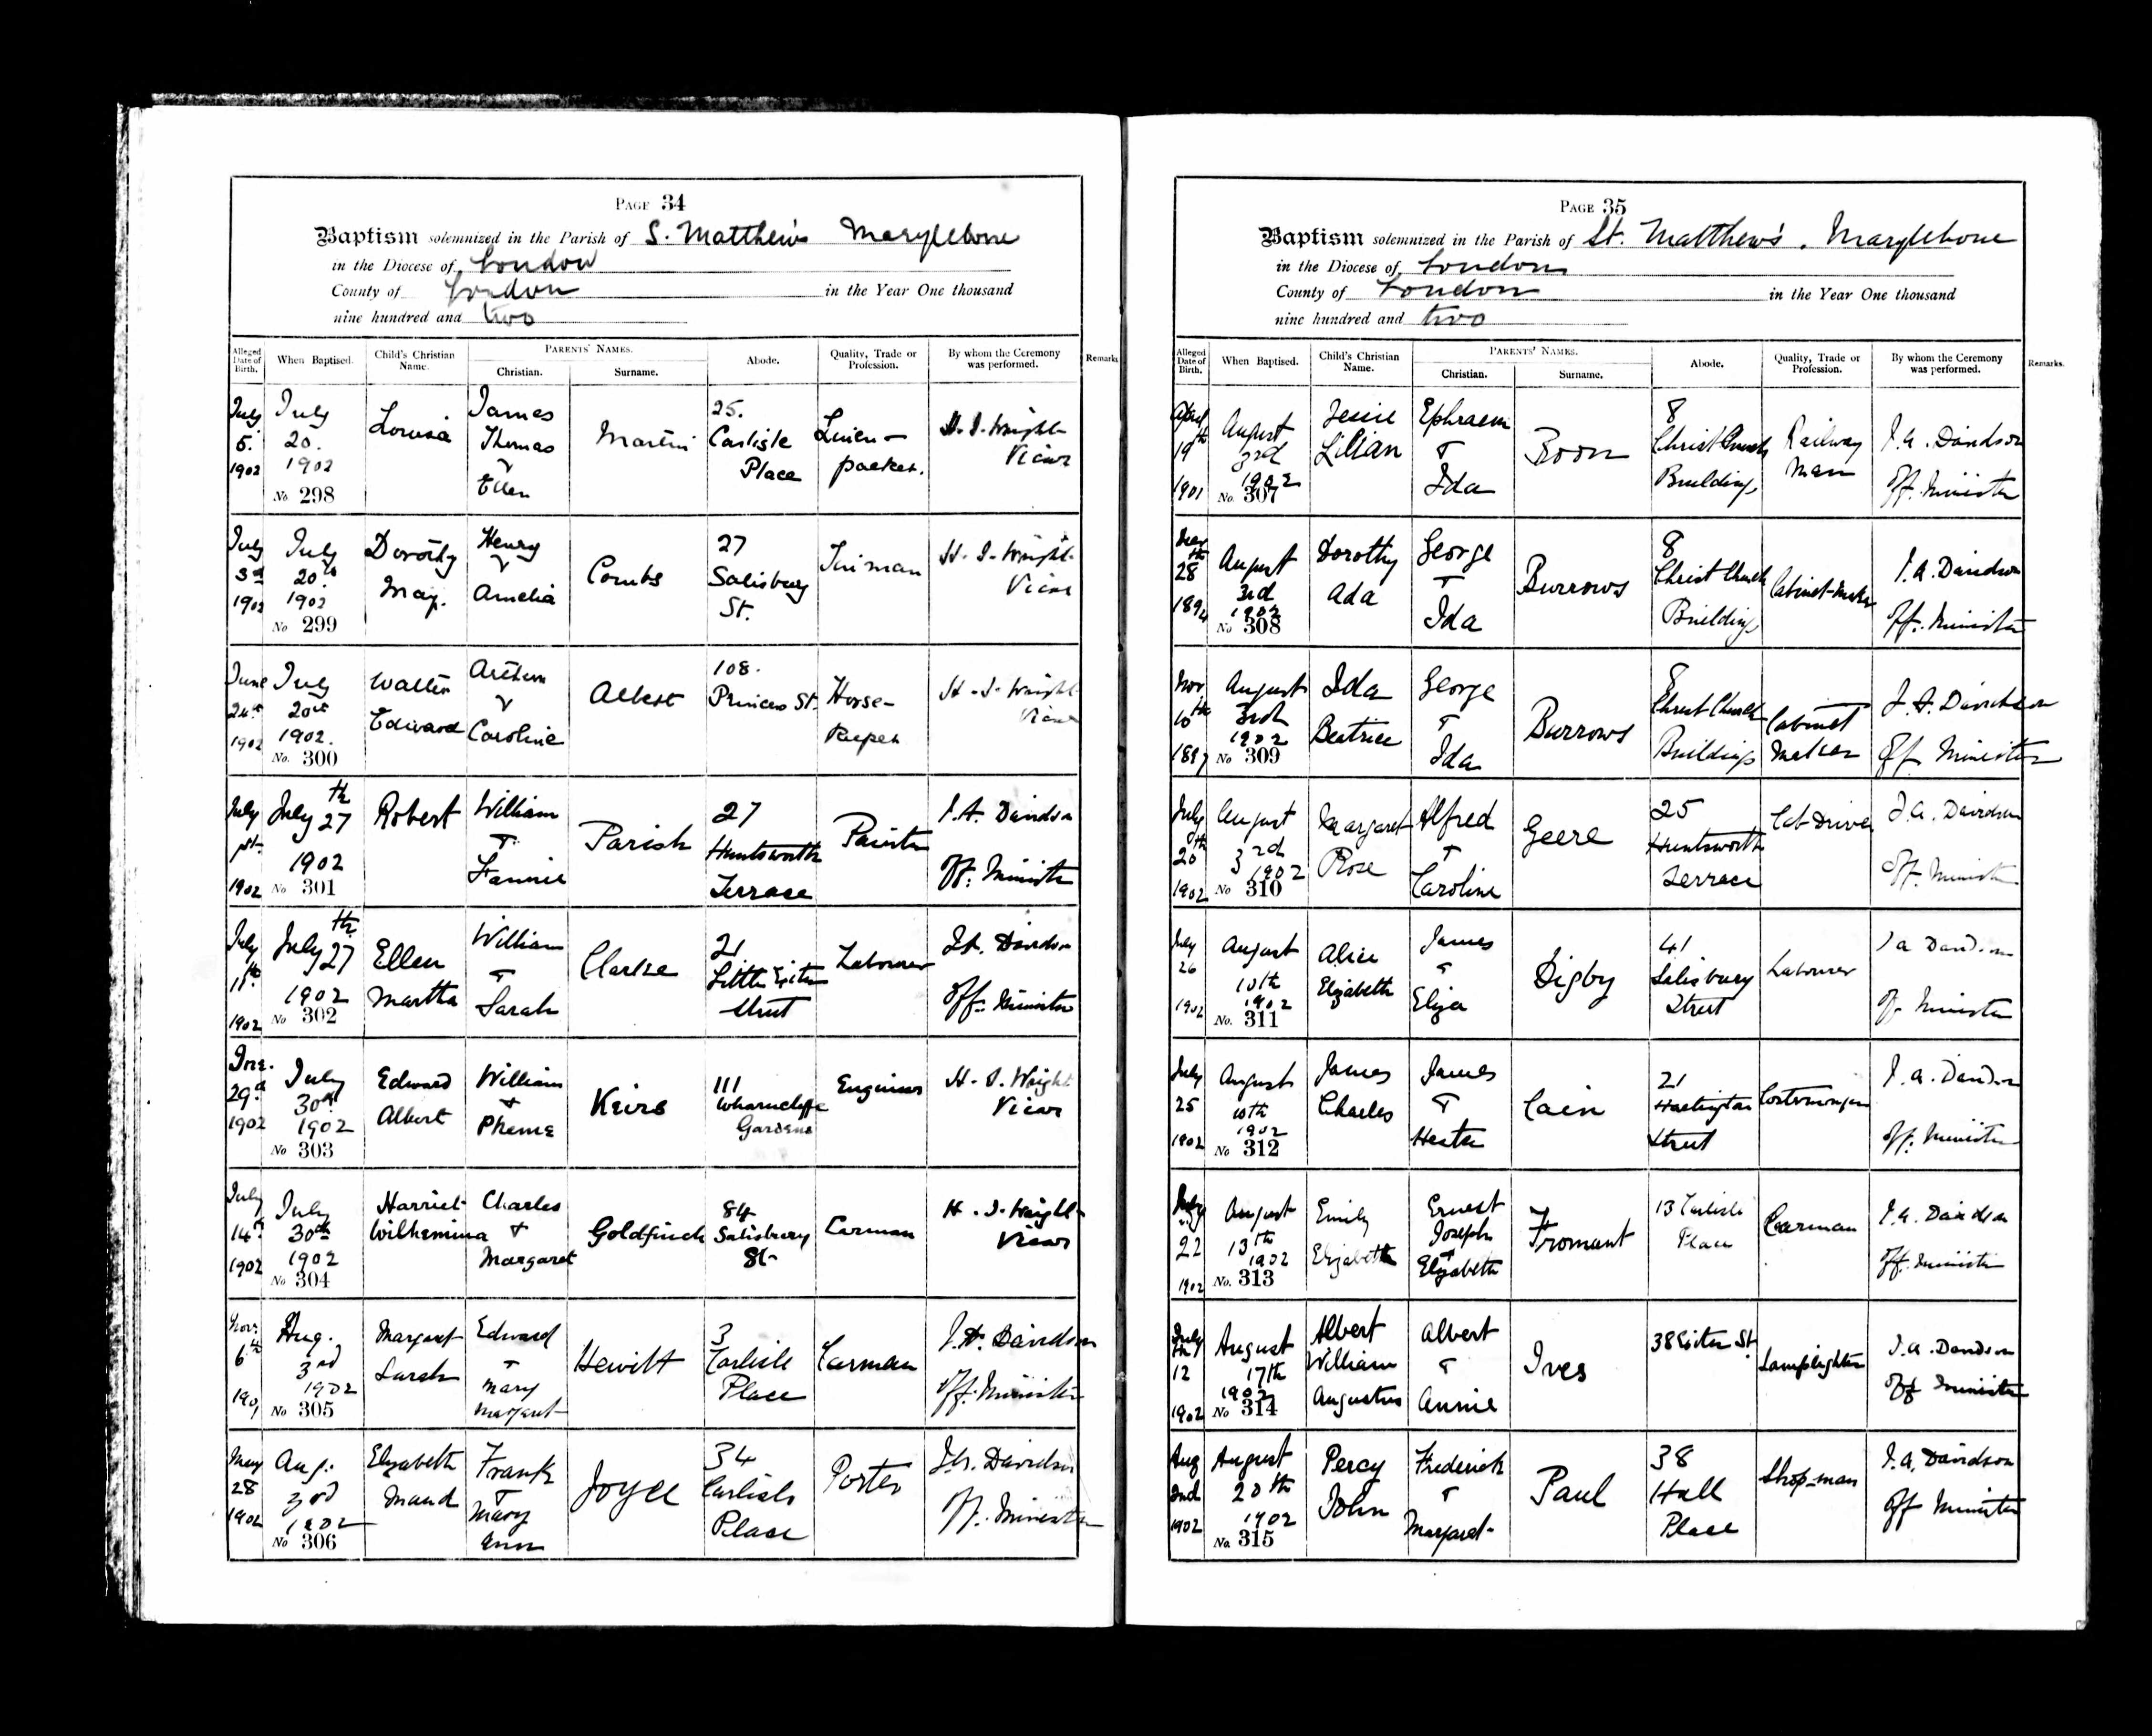 PAGE 34
Baptism solemnized in the Parish of S. Matthew's Marylebone
in the Diocese of London
County of London in the Year One thousand
nine hundred and two
Alleged Date of Birth. When Baptised. Child's Christian Name. PARENTS' NAMES. Christian. Surname. Abode. Quality, Trade or Profession. By whom the Ceremony was performed. Remarks
July 5. 1902 July 20. 1902 No 298 Louisa James Thomas & Ellen Martin 25. Carlisle Place Linen-packer. H. J. Wright Vicar
July 3rd 1902 July 20th 1902 No 299 Dorothy May. Henry & Amelia Combs 27 Salisbury St. Tinman H. J. Wright Vicar
June 24th 1902 July 20th 1902. No. 300 Walter Edward Arthur & Caroline Albest 108. Princess St. Horse-Keeper H. J. Wright Vicar
July 1st 1902 July 27th 1902 No 301 Robert William & Fannie Parish 27 Huntsworth Terrace Painter J. A. Davidson Off. Minister
July 11th 1902 July 27th 1902 No 302 Ellen Martha William & Sarah Clarke 21 Little Exeter Street Labourer J. A. Davidson Off. Minister
29th 1902 July 30th 1902 No 303 Edward Albert William & Pheme Keirs 111 Wharncliffe Gardens Engineer H. J. Wright Vicar
July 14th 1902 July 30th 1902 No 304 Harriet Wilhemina Charles & Margaret Goldfinch 84 Salisbury St Carman H. J. Wright Vicar
Nov. 6th 1901 Aug. 3rd 1902 No 305 Margaret Sarah Edward & Mary Margaret Hewitt 3 Carlisle Place Carman J. A. Davidson Off. Minister
May 28 1902 Aug. 3rd 1902 No 306 Elizabeth Maud Frank & Mary Ann Joyce 34 Carlisle Place Porter J. A. Davidson Off. Minister
PAGE 35
Baptism solemnized in the Parish of St. Matthew's, Marylebone
in the Diocese of London
County of London in the Year One thousand
nine hundred and two
Alleged Date of Birth. When Baptised. Child's Christian Name. PARENTS' NAMES. Christian. Surname. Abode. Quality, Trade or Profession. By whom the Ceremony was performed. Remarks.
April 19th 1901 August 3rd 1902 No. 307 Jessie Lilian Ephraem & Ida Boon 8 Christ Church Buildings Railway Man J. A. Davidson Off. Minister
28th 1894 August 3rd 1902 No 308 Dorothy Ada George & Ida Burrows 8 Christ Church Buildings Cabinet-Maker J. A. Davidson Off. Minister
Nov 10th 1897 August 3rd 1902 No 309 Ida Beatrice George & Ida Burrows 8 Christ Church Buildings Cabinet Maker J. A. Davidson Off Minister
July 20th 1902 August 3rd 1902 No 310 Margaret Rose Alfred & Caroline Geere 25 Huntsworth Terrace Cab-Driver J. A. Davidson Off. Minister
July 26 1902 August 10th 1902 No. 311 Alice Elizabeth James & Eliza Digby 41 Salisbury Street Labourer J A Davidson Off Minister
July 25 1902 August 10th 1902 No 312 James Charles James & Hester Cain 21 Hartington Street Costermonger J. A. Davidson Off. Minister
July 22 1902 August 13th 1902 No. 313 Emily Elizabeth Ernest Joseph & Elizabeth Fromant 13 Carlisle Place Carman J. A. Davidson Off. Minister
July 12 1902 August 17th 1902 No 314 Albert William Augustus Albert & Annie Ives 38 Exeter St Lamplighter J. A. Davidson Off Minister
Aug 2nd 1902 August 20th 1902 No. 315 Percy John Frederick & Margaret Paul 38 Hall Place Shop-man J. A. Davidson Off Minister